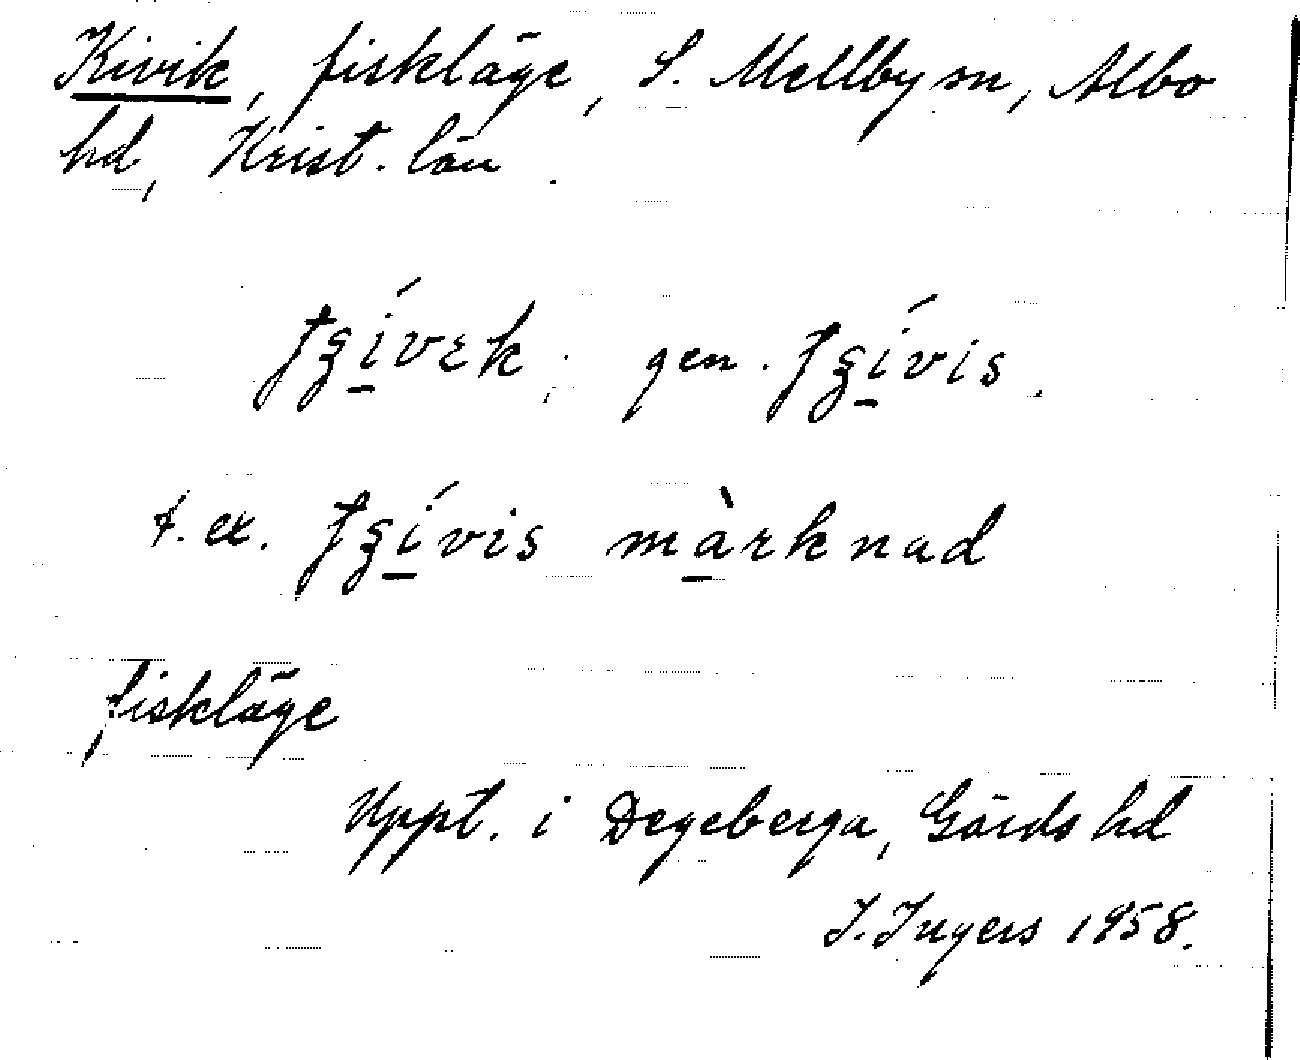 Kivik, fiskläge, S. Mellby sn, Albo
hd, Krist. län.
tʂí̱vɛk, gen. tʂí̱vis.
t. ex. tʂí̱vis mà̱rknad
fiskläge
Uppt. i Degeberga, Gärds hd
I. Ingers 1958.